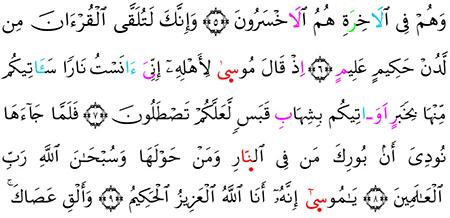 وَهُمْ فِى الَاخِرَةِ هُمُ الَاخْسَرُونَ ﴿٥﴾ وَإِنَّكَ لَتُلَقَّى الْقُرْءَانَ مِن
لَّدُنْ حَكِيمٍ عَلِيمٍ ﴿٦﴾ اِذْ قَالَ مُوسىٰ لِأَهْلِهِۦٓ إِنِّىَ ءَانَسْتُ نَارًا سَـَٔاتِيكُم
مِّنْهَا بِخَبَرٍ اَوَ ـاتِيكُم بِشِهَابِ قَبَسٍ لَّعَلَّكُمْ تَصْطَلُونَ ﴿٧﴾ فَلَمَّا جَآءَهَا
نُودِىَ أَنۢ بُورِكَ مَن فِى النّارِ وَمَنْ حَوْلَهَا وَسُبْحَـٰنَ اللَّهِ رَبِّ
الْعَـٰلَمِينَ ﴿٨﴾ يَـٰمُوسىٰٓ إِنَّهُۥٓ أَنَا اللَّهُ الْعَزِيزُ الْحَكِيمُ ﴿٩﴾ وَأَلْقِ عَصَاكَ ۚ